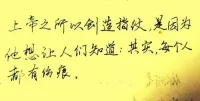 上帝之所以创造指纹,是因为
他想让人们知道:其实,每个人
都有伤痕。